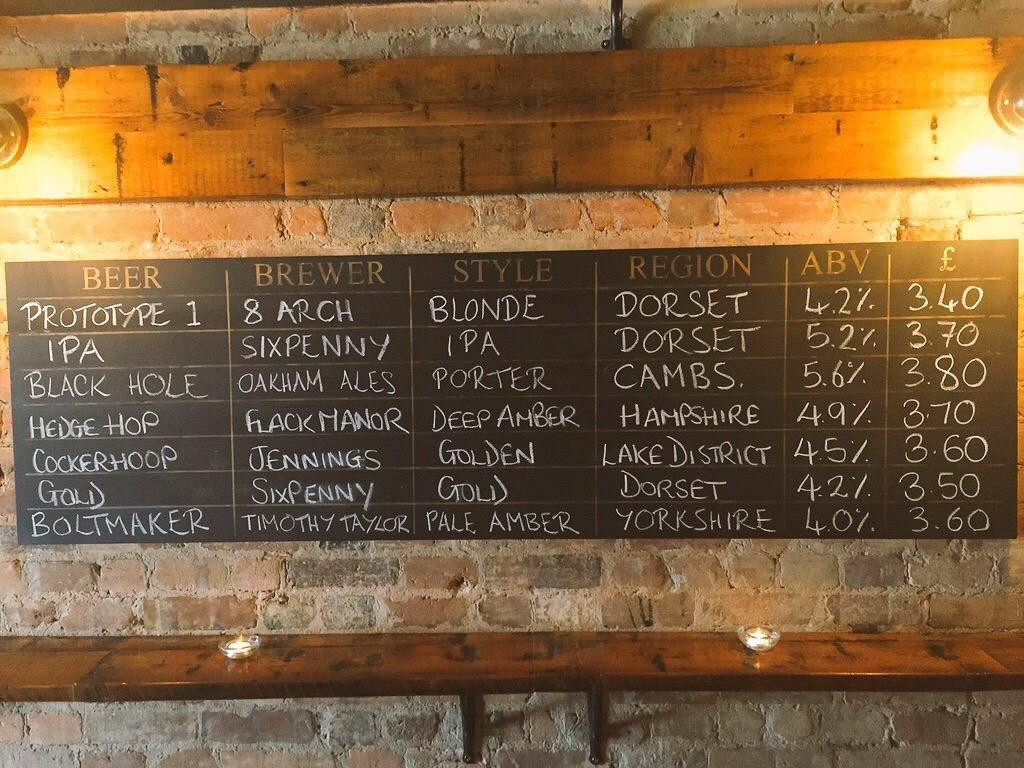 BEER BREWER STYLE REGION ABV £
PROTOTYPE 1 8 ARCH BLONDE DORSET 4.2% 3.40
IPA SIXPENNY IPA DORSET 5.2% 3.70
BLACK HOLE OAKHAM ALES PORTER CAMBS. 5.6% 3.80
HEDGE HOP FLACK MANOR DEEP AMBER HAMPSHIRE 4.9% 3.70
COCKERHOOP JENNINGS GOLDEN LAKE DISTRICT 4.5% 3.60
GOLD SIXPENNY GOLD DORSET 4.2% 3.50
BOLTMAKER TIMOTHY TAYLOR PALE AMBER YORKSHIRE 4.0% 3.60